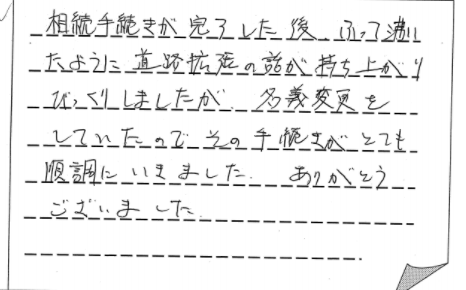 相続手続きが完了した後、ふって湧い
たように道路拡張の話が持ち上がり
びっくりしましたが、名義変更を
していたのでその手続きがとても
順調にいきました。ありがとう
ございました。